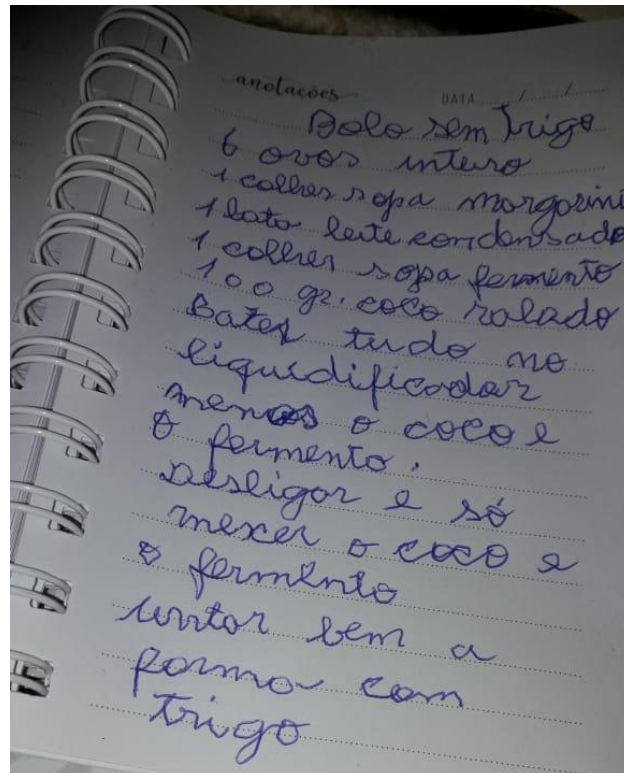 anotações
DATA / /
Bolo sem trigo
6 ovos inteiro
1 colher sopa margarin
1 lata leite condensado
1 colher sopa fermento
100 gr. coco ralado
Bater tudo no
liquidificador
menos o coco e
o fermento.
Desligar e só
mexer o coco e
o fermento
untar bem a
forma com
trigo